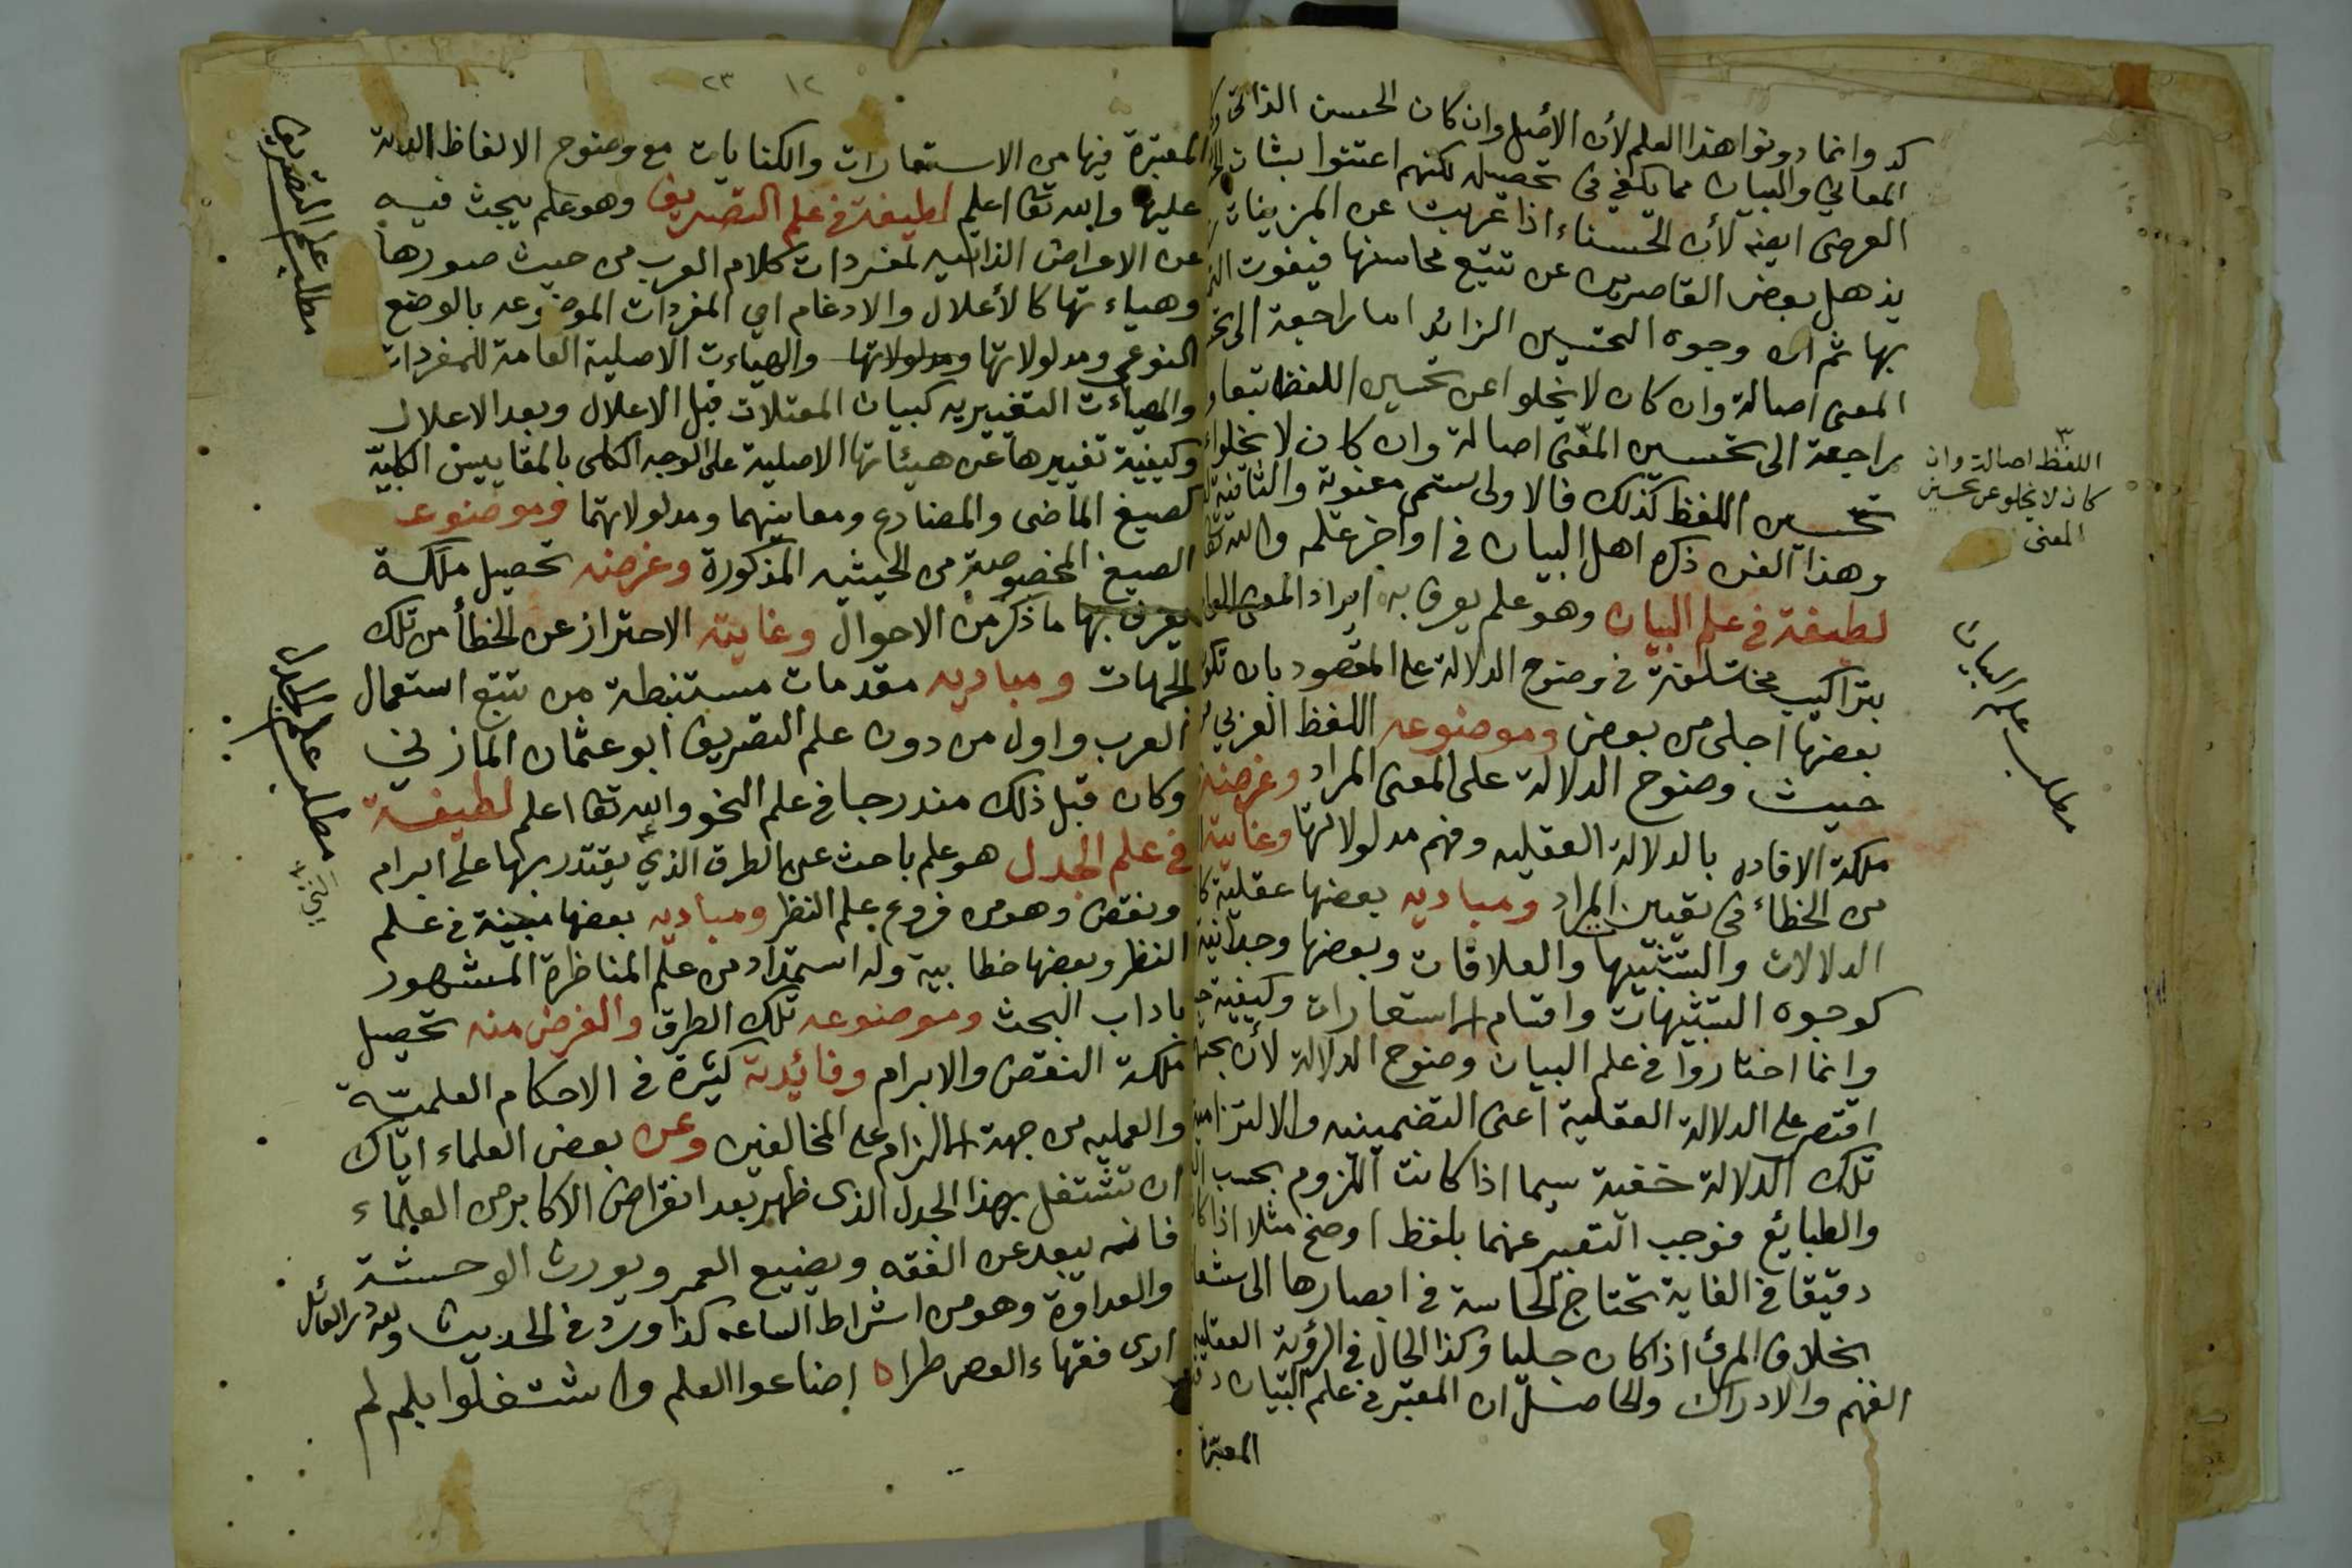 كد وانما دونوا هذا العلم لأن الأصل وان كان الحسن الذاتى
المعاني والبيان مما يكفي في تحصيله لكنهم اعتنوا بشان
العرضى ايضه لأن الحسناء اذا عريت عن المزينات
يذهل بعض القاصرين عن تتبع محاسنها فيفوت
بها ثم ان وجوه التحسين الزائد اما راجعة الى
المعنى اصالة وان كان لا يخلوا عن تحسين اللفظ تبعا
راجعة الى تحسين المعنى اصالة وان كان لا يخلوا
تحسين اللفظ كذلك فالاولى ستمى معنوية والثانية
وهذا الفن ذكره اهل البيان في اواخر علمه والله تعا
لطيفة في علم البيان وهو علم يعرف به ايراد المعنى
بتراكيب مختلفة في وضوح الدلالة على المقصود بان تكون
بعضها اجلى من بعض وموضوعه اللفظ العربي
حيث وضوح الدلالة على المعنى المراد وغرضه
ملكة الافاده بالدلالة العقليه وفهم مدلولاتها وغايته
من الخطاء في تعيين المراد ومباديه بعضها عقلية
الدلالات والتشبيها والعلاقات وبعضها وجدانية
كوجوه التشبيهات واقسام الاستعارات وكيفية
وانما اختاروا في علم البيان وضوح الدلالة لأن
اقتصر على الدلالة العقلية اعنى التضمينيه والالتزامية
تلك الدلالة خفية سيما اذا كانت اللزوم بحسب
والطبايع فوجب التعبير عنهما بلفظ اوضح مثلا اذا كا
دقيقا في الغاية تحتاج الحاسة في ابصارها الى
بخلاف المرئ اذا كان جليا وكذا الحال في الرؤية العقليه
الفهم والادراك والحاصل ان المعتبر في علم البيان
المعتبرة
اللفظ اصالة وان
كان لا يخلو عن تحسين
المعنى
مطلب علم البيان
١٢ ٢٣
المعتبرة فيها من الاستعارات والكنايات مع وضوح الالفاظ الداله
عليها والله تعا اعلم لطيفة في علم التصريف وهو علم يبحث فيه
عن الاعراض الذاتيه لمفردات كلام العرب من حيث صورها
وهياءتها كالأعلال والادغام اي المفردات الموضوعه بالوضع
النوعي ومدلولاتها ومدلولاتها والهياءت الاصلية العامة للمفردات
والهياءت التغييريه كبيان المعتلات قبل الاعلال وبعد الاعلال
وكيفية تغييرها عن هيئاتها الاصلية على الوجه الكلى بالمقاييس الكلية
كصيغ الماضى والمضارع ومعانيهما ومدلولاتهما وموضوعه
الصيغ المخصوصة من الحيثيه المذكورة وغرضه تحصيل ملكة
يعرف بها ما ذكر من الاحوال وغايته الاحتراز عن الخطأ من تلك
الجهات ومباديه مقدمات مستنبطة من تتبع استعمال
العرب واول من دون علم التصريف ابو عثمان المازني
وكان قبل ذلك مندرجا في علم النحو والله تعا اعلم لطيفة
في علم الجدل هو علم باحث عن الطرق الذي يقتدر بها على ابرام
ونقض وهو من فروع علم النظر ومباديه بعضها مبينة في علم
النظر وبعضها خطابية وله استمداد من علم المناظرة المشهور
باداب البحث وموضوعه تلك الطرق والغرض منه تحصيل
ملكة النقض والابرام وفائدته كثيرة في الاحكام العلميّة
والعمليه من جهة الالزام على المخالفين وعن بعض العلماء اياك
ان تشتغل بهذا الجدل الذى ظهر بعد انقراض الاكابر من العلماء
فانه يبعد عن الفقه ويضيع العمر ويورث الوحشة
والعداوة وهو من اشراط الساعه كذا ورد في الحديث ولله در القائل
ارى فقهاء العصر طرا ه اضاعوا العلم واشتغلوا بلم لم
مطلب علم التصريف
مطلب علم الجدل